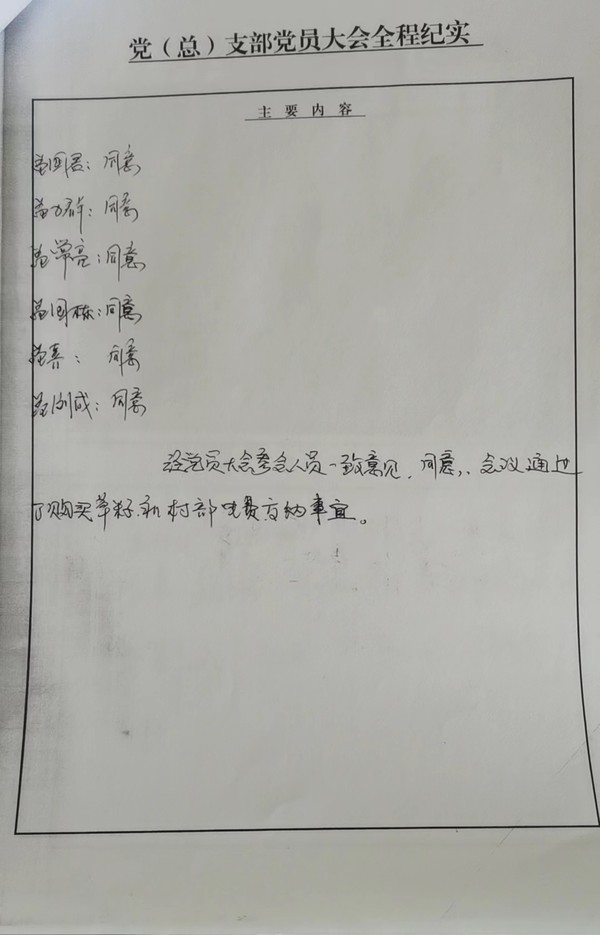 党（总）支部党员大会全程纪实
主要内容
：同意
：同意
学亮：同意
国栋：同意
：同意
成：同意
经党员大会参会人员一致意见，同意，会议通过
了购买草籽和村部电费交纳事宜。